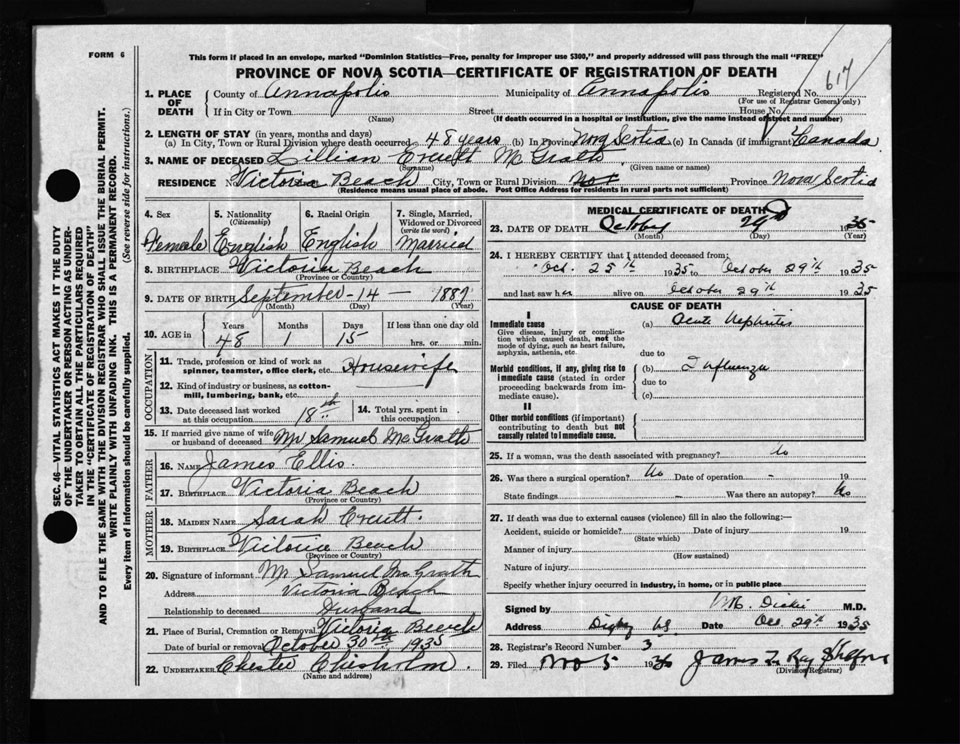 FORM 6
This form if placed in an envelope, marked "Dominion Statistics—Free, penalty for improper use $300," and properly addressed will pass through the mail "FREE"
PROVINCE OF NOVA SCOTIA—CERTIFICATE OF REGISTRATION OF DEATH
617
SEC. 46—VITAL STATISTICS ACT MAKES IT THE DUTY
OF THE UNDERTAKER OR PERSON ACTING AS UNDER-
TAKER TO OBTAIN ALL THE PARTICULARS REQUIRED
IN THE "CERTIFICATE OF REGISTRATION OF DEATH"
AND TO FILE THE SAME WITH THE DIVISION REGISTRAR WHO SHALL ISSUE THE BURIAL PERMIT.
WRITE PLAINLY WITH UNFADING INK. THIS IS A PERMANENT RECORD.
Every item of information should be carefully supplied. (See reverse side for instructions.)
1. PLACE OF DEATH
County of Annapolis Municipality of Annapolis Registered No.
(For use of Registrar General only)
If in City or Town Street House No.
(Name) (If death occurred in a hospital or institution, give the name instead of street and number)
2. LENGTH OF STAY (in years, months and days)
(a) In City, Town or Rural Division where death occurred 48 years (b) In Province Nova Scotia (c) In Canada (if immigrant) Canada
3. NAME OF DECEASED Lillian McGrath
(Surname) (Given name or names)
RESIDENCE No. Victoria Beach City, Town or Rural Division Province Nova Scotia
(Residence means usual place of abode. Post Office Address for residents in rural parts not sufficient)
4. Sex
Female
5. Nationality
(Citizenship)
English
6. Racial Origin
English
7. Single, Married,
Widowed or Divorced
(write the word)
Married
8. BIRTHPLACE Victoria Beach
(Province or Country)
9. DATE OF BIRTH September - 14 - 1887
(Month) (Day) (Year)
10. AGE in
Years Months Days If less than one day old
48 1 15 hrs. or min.
OCCUPATION
11. Trade, profession or kind of work as
spinner, teamster, office clerk, etc. Housewife
12. Kind of industry or business, as cotton-
mill, lumbering, bank, etc.
13. Date deceased last worked
at this occupation 18th
14. Total yrs. spent in
this occupation
15. If married give name of wife
or husband of deceased Mr Samuel McGrath
FATHER
16. NAME James Ellis.
17. BIRTHPLACE Victoria Beach
(Province or Country)
MOTHER
18. MAIDEN NAME Sarah
19. BIRTHPLACE Victoria Beach
(Province or Country)
20. Signature of informant Mr Samuel McGrath
Address Victoria Beach
Relationship to deceased Husband
21. Place of Burial, Cremation or Removal Victoria Beach
Date of burial or removal October 30th 1935
22. UNDERTAKER Chester Chisholm
(Name and address)
MEDICAL CERTIFICATE OF DEATH
23. DATE OF DEATH October 29 1935
(Month) (Day) (Year)
24. I HEREBY CERTIFY that I attended deceased from;
Oct. 25th 1935 to October 29th 1935
and last saw her alive on October 29th 1935
CAUSE OF DEATH
I
Immediate cause
Give disease, injury or complica-
tion which caused death, not the
mode of dying, such as heart failure,
asphyxia, asthenia, etc.
(a) Acute Nephritis
due to
Morbid conditions, if any, giving rise to
immediate cause (stated in order
proceeding backwards from im-
mediate cause).
(b) Influenza
due to
(c)
II
Other morbid conditions (if important)
contributing to death but not
causally related to immediate cause.
25. If a woman, was the death associated with pregnancy? No
26. Was there a surgical operation? No Date of operation - 19
State findings - Was there an autopsy? No
27. If death was due to external causes (violence) fill in also the following:—
Accident, suicide or homicide? Date of injury 19
(State which)
Manner of injury
(How sustained)
Nature of injury
Specify whether injury occurred in industry, in home, or in public place
Signed by M.D.
Address Digby NS Date Oct 29th 1935
28. Registrar's Record Number 3
29. Filed Nov 5 19 James
(Division Registrar)